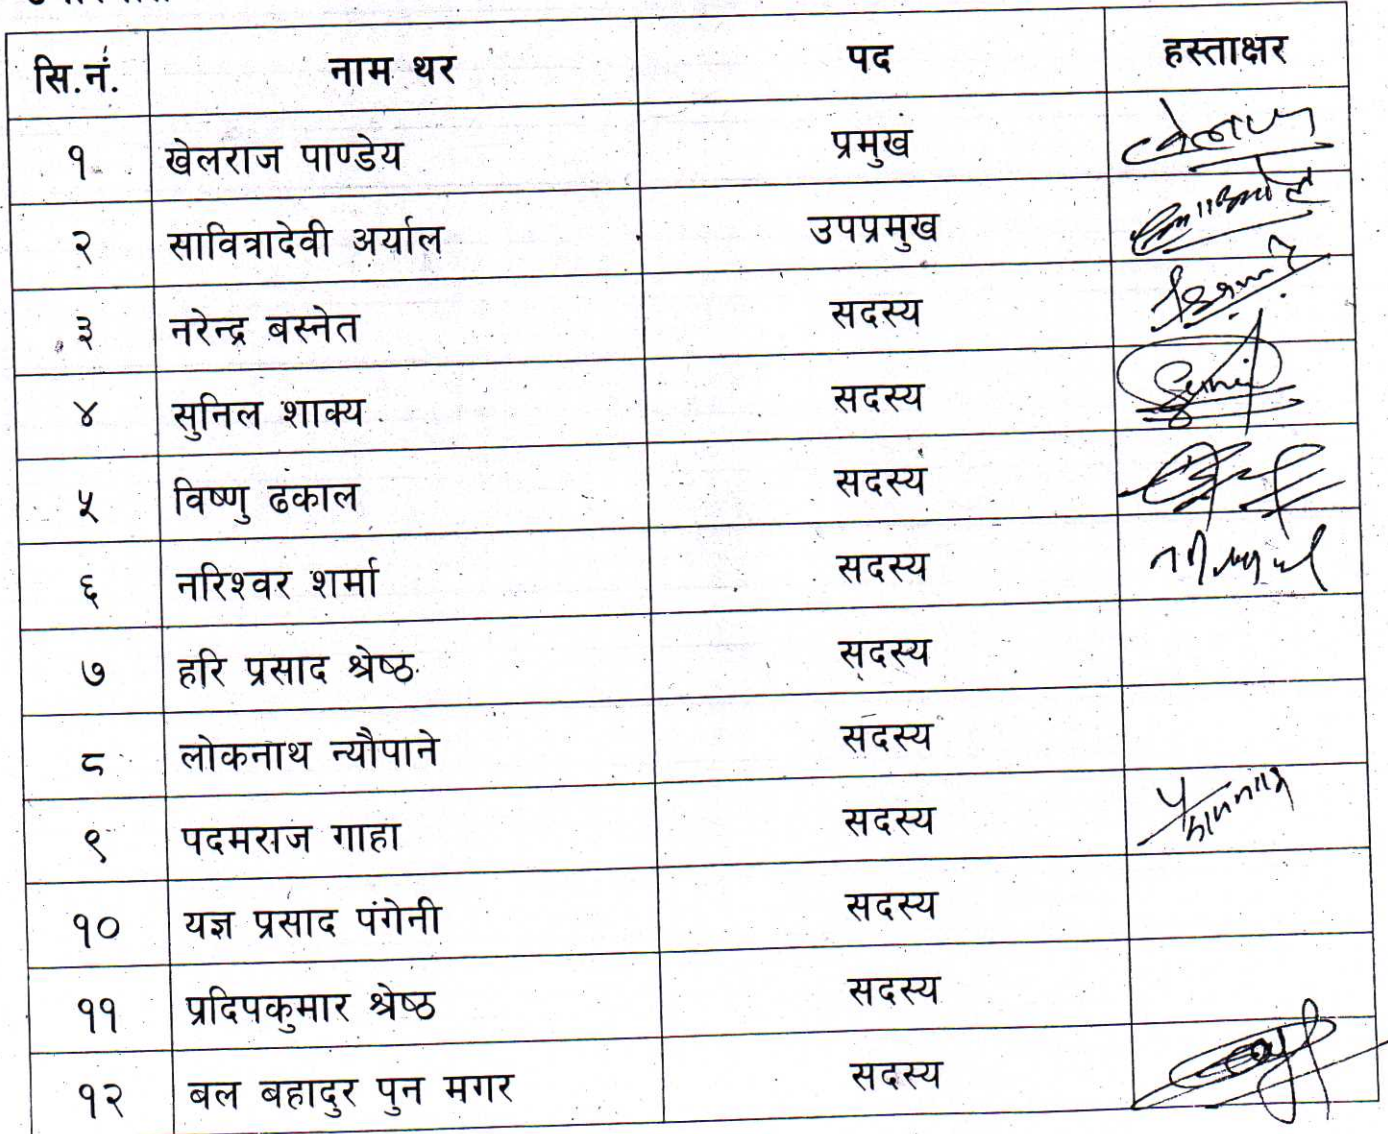 सि.नं. नाम थर पद हस्ताक्षर
१ खेलराज पाण्डेय प्रमुख
२ सावित्रादेवी अर्याल उपप्रमुख
३ नरेन्द्र बस्नेत सदस्य
४ सुनिल शाक्य सदस्य
५ विष्णु ढकाल सदस्य
६ नरिश्वर शर्मा सदस्य
७ हरि प्रसाद श्रेष्ठ सदस्य
८ लोकनाथ न्यौपाने सदस्य
९ पदमराज गाहा सदस्य
१० यज्ञ प्रसाद पंगेनी सदस्य
११ प्रदिपकुमार श्रेष्ठ सदस्य
१२ बल बहादुर पुन मगर सदस्य